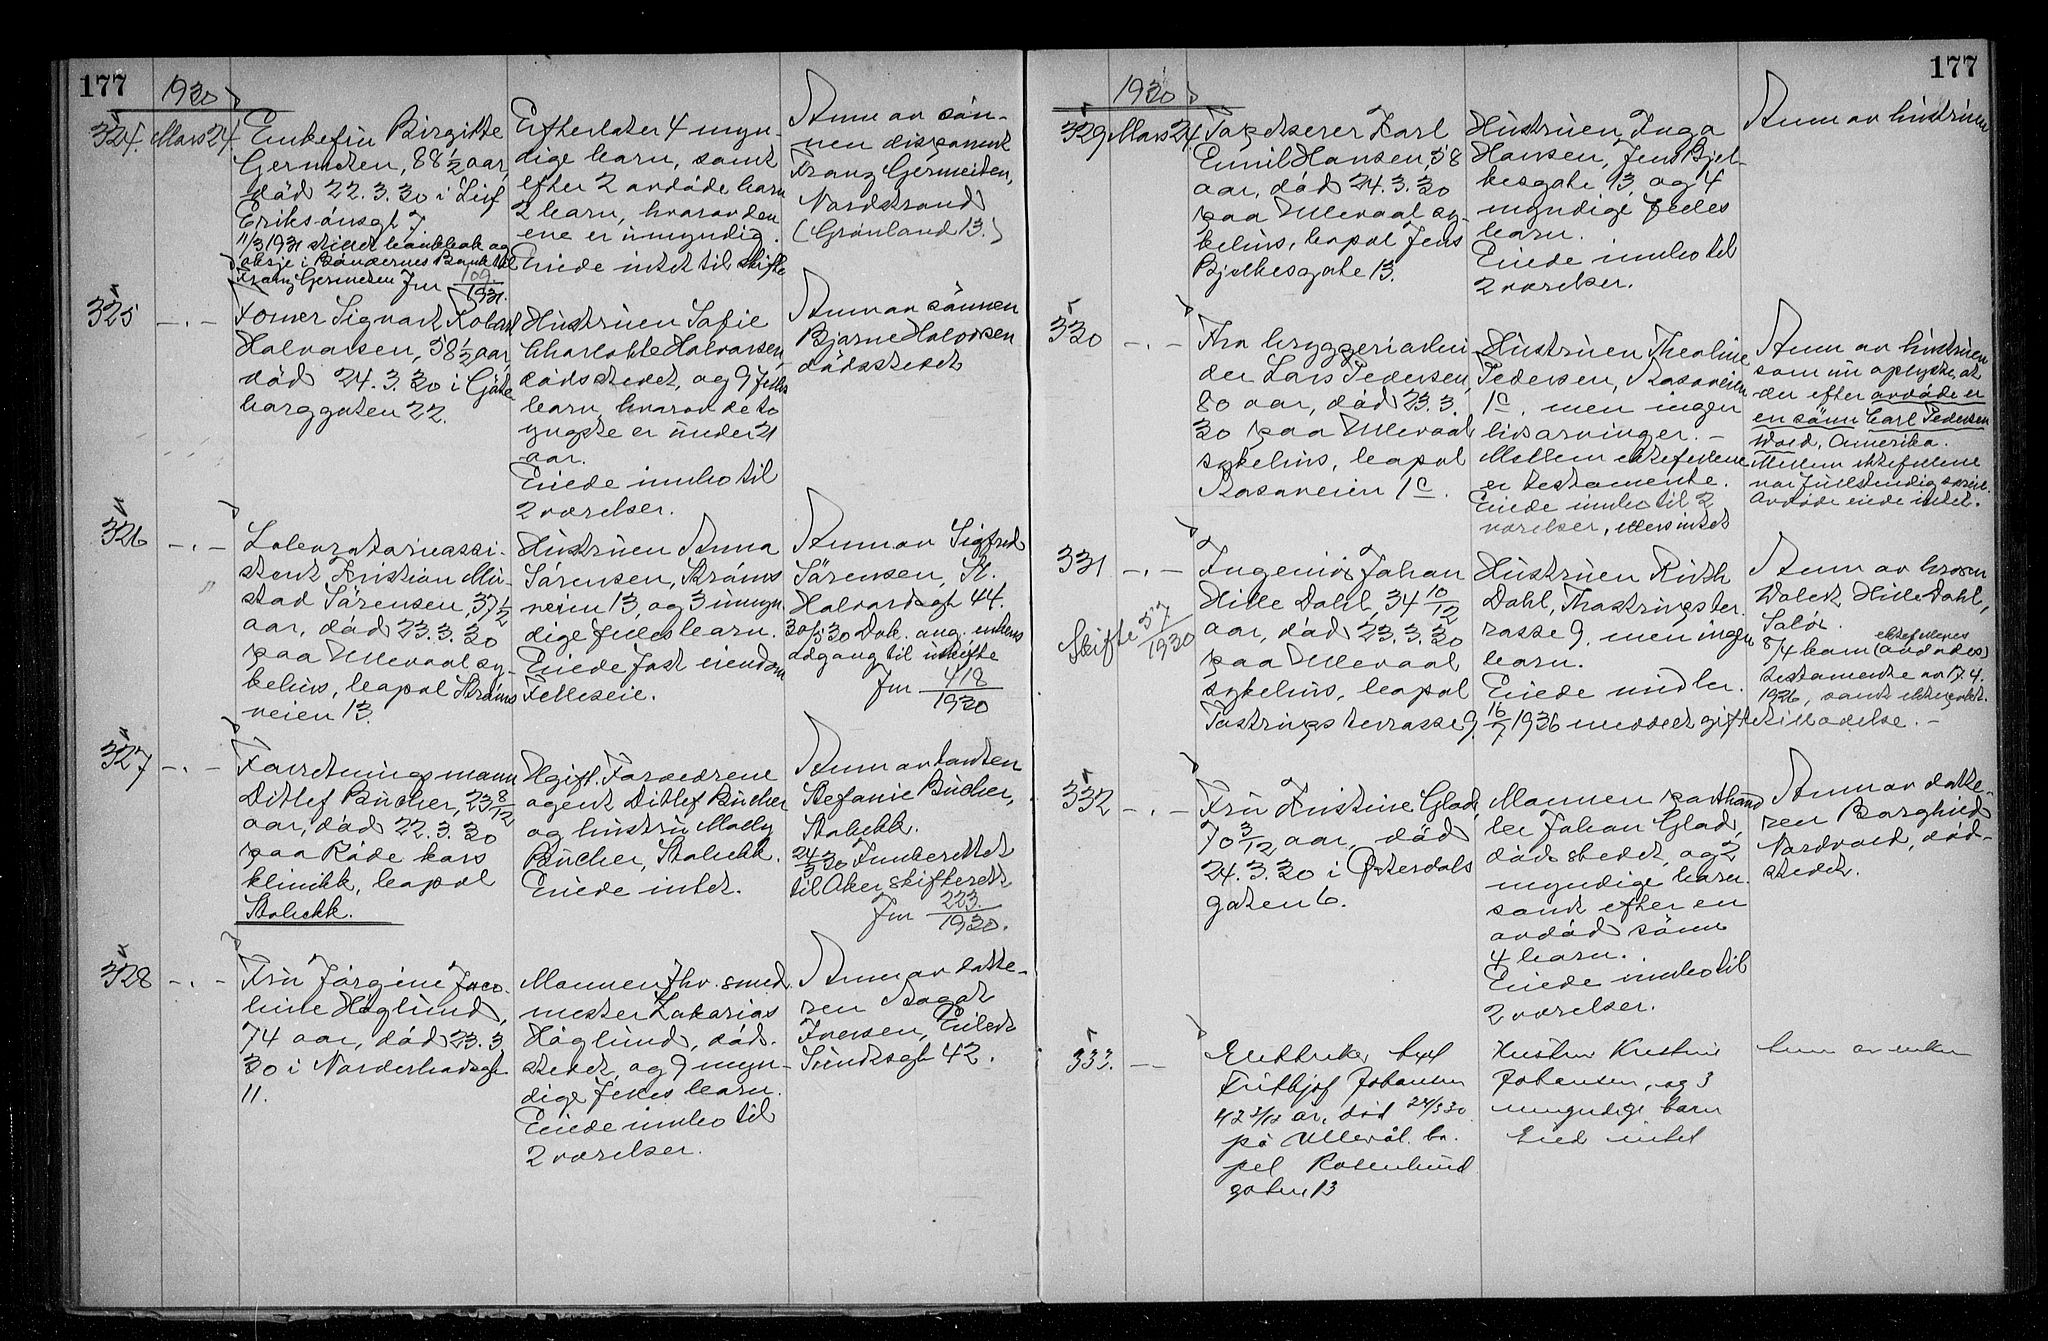 177
1930
324. Mars 24.
Enkefru Birgitte
Germeten, 88 1/2 aar,
død 22.3.30 i Leif
Erikssønsgt 7.
11/3 1931 stillet bankbok og
aksje i Bøndernes Bank til
Franz Germeten Jnr 109/1931.
Efterlater 4 myn-
dige barn, samt
efter 2 avdøde barn
2 barn, hvorav den
ene er umyndig.
Eiede intet til skifte
Anm av søn-
nen disponent
Franz Germeten,
Nordstrand
(Grønland 13.)
325 -"-
Former Sigvart
Halvorsen, 58 1/2 aar,
død 24.3.30 i Gøte
borggaten 22.
Hustruen Sofie
Charlotte Halvorsen,
dødsstedet, og 9 felles
barn, hvorav de to
yngste er under 21
aar.
Eiede innbo til
2 værelser.
Anm av sønnen
Bjarne Halvorsen
dødsstedet
326 -"-
Laboratorieassi-
stent Kristian Mu-
stad Sørensen, 37 1/2
aar, død 23.3.30
paa Ullevaal sy-
kehus, bopæl Strøms
veien 13.
Hustruen Anna
Sørensen, Strøms
veien 13, og 3 umyn
dige felles barn.
Eiede fast eiendom
Felleseie.
Anm av Sigfred
Sørensen, St.
Halvardsgt 44.
30/5 30 Dok. ang. enkens
adgang til uskifte
Jnr 418/1930
327 -"-
Forretningsmann
Ditlef Bucher, 23 8/12
aar, død 22.3.30
paa Røde kors
klinikk, bopæl
Stabekk.
Ugift. Forældrene
agent Ditlef Bucher
og hustru Molly
Bucher, Stabekk.
Eiede intet.
Anm av tanten
Stefanie Bucher,
Stabekk.
24/3 30 Innberettet
til Aker skifterett
Jnr 223/1930.
328 -"-
Fru Jørgine Jaco-
bine Høglund,
74 aar, død 23.3
30 i Norderhovsgt
11.
Mannen fhv. smed
mester Zakarias
Høglund, død-
stedet, og 9 myn-
dige felles barn.
Eiede innbo til
2 værelser.
Anm av datte-
ren Aagot
Iversen, Eilert
Sundtsgt 42.
177
1930
329 Mars 24.
Tapetserer Karl
Emil Hansen 58
aar, død 24.3.30
paa Ullevaal sy-
kehus, bopæl Jens
Bjelkesgate 13.
Hustruen Inga
Hansen, Jens Bjel-
kesgate 13, og 4
myndige felles
barn.
Eiede innbo til
2 værelser.
Anm av hustruen
330 -"-
Fhv bryggeriarbei
der Lars Pedersen,
80 aar, død 23.3.
30 paa Ullevaal
sykehus, bopæl
Aasaveien 1c.
Hustruen Thealine
Pedersen, Aasaveien
1c. men ingen
livsarvinger. -
Mellem ektefellene
er testamente.
Eiede innbo til 2
værelser, ellers intet
Anm av hustruen
som nu oplyste at
der efter avdøde er
en sønn Carl Pedersen
Wold, Amerika.
Mellem ektefellene
var fullstendig særeie.
Avdøde eiede intet.
331 -"-
Skifte 37/1930
Ingeniør Johan
Hille Dahl, 34 10/12
aar, død 23.3.30
paa Ullevaal
sykehus, bopæl
Tostrupsterrasse 9.
Hustruen Ruth
Dahl, Thostrupster-
rasse 9, men ingen
barn.
Eiede midler.
16/7 1936 meddelt giftetilladelse. -
Anm av broren
Hille Dahl,
8/4 kom (ektefellenes avdødes)
testamente av 17.4.
1926, samt ektepakt.
332 -"-
Fru Kristine Glad,
70 3/12 aar, død
24.3.30 i Østerdals
gaten 6.
Mannen
ler Johan Glad,
dødsstedet, og 2
myndige barn
samt efter en
avdød sønn
4 barn.
Eiede innbo til
2 værelser.
Anm av datte-
ren Borghild
Nordvold, død-
stedet.
333. -"-
Elektriker
Frithjof Johansen
42 år, død 24/3 30
på Ullevål. bo-
pel Rosenlund
gaten 13
Hustru Kristine
Johansen, og 3
umyndige barn
Eied intet
Anm av enken